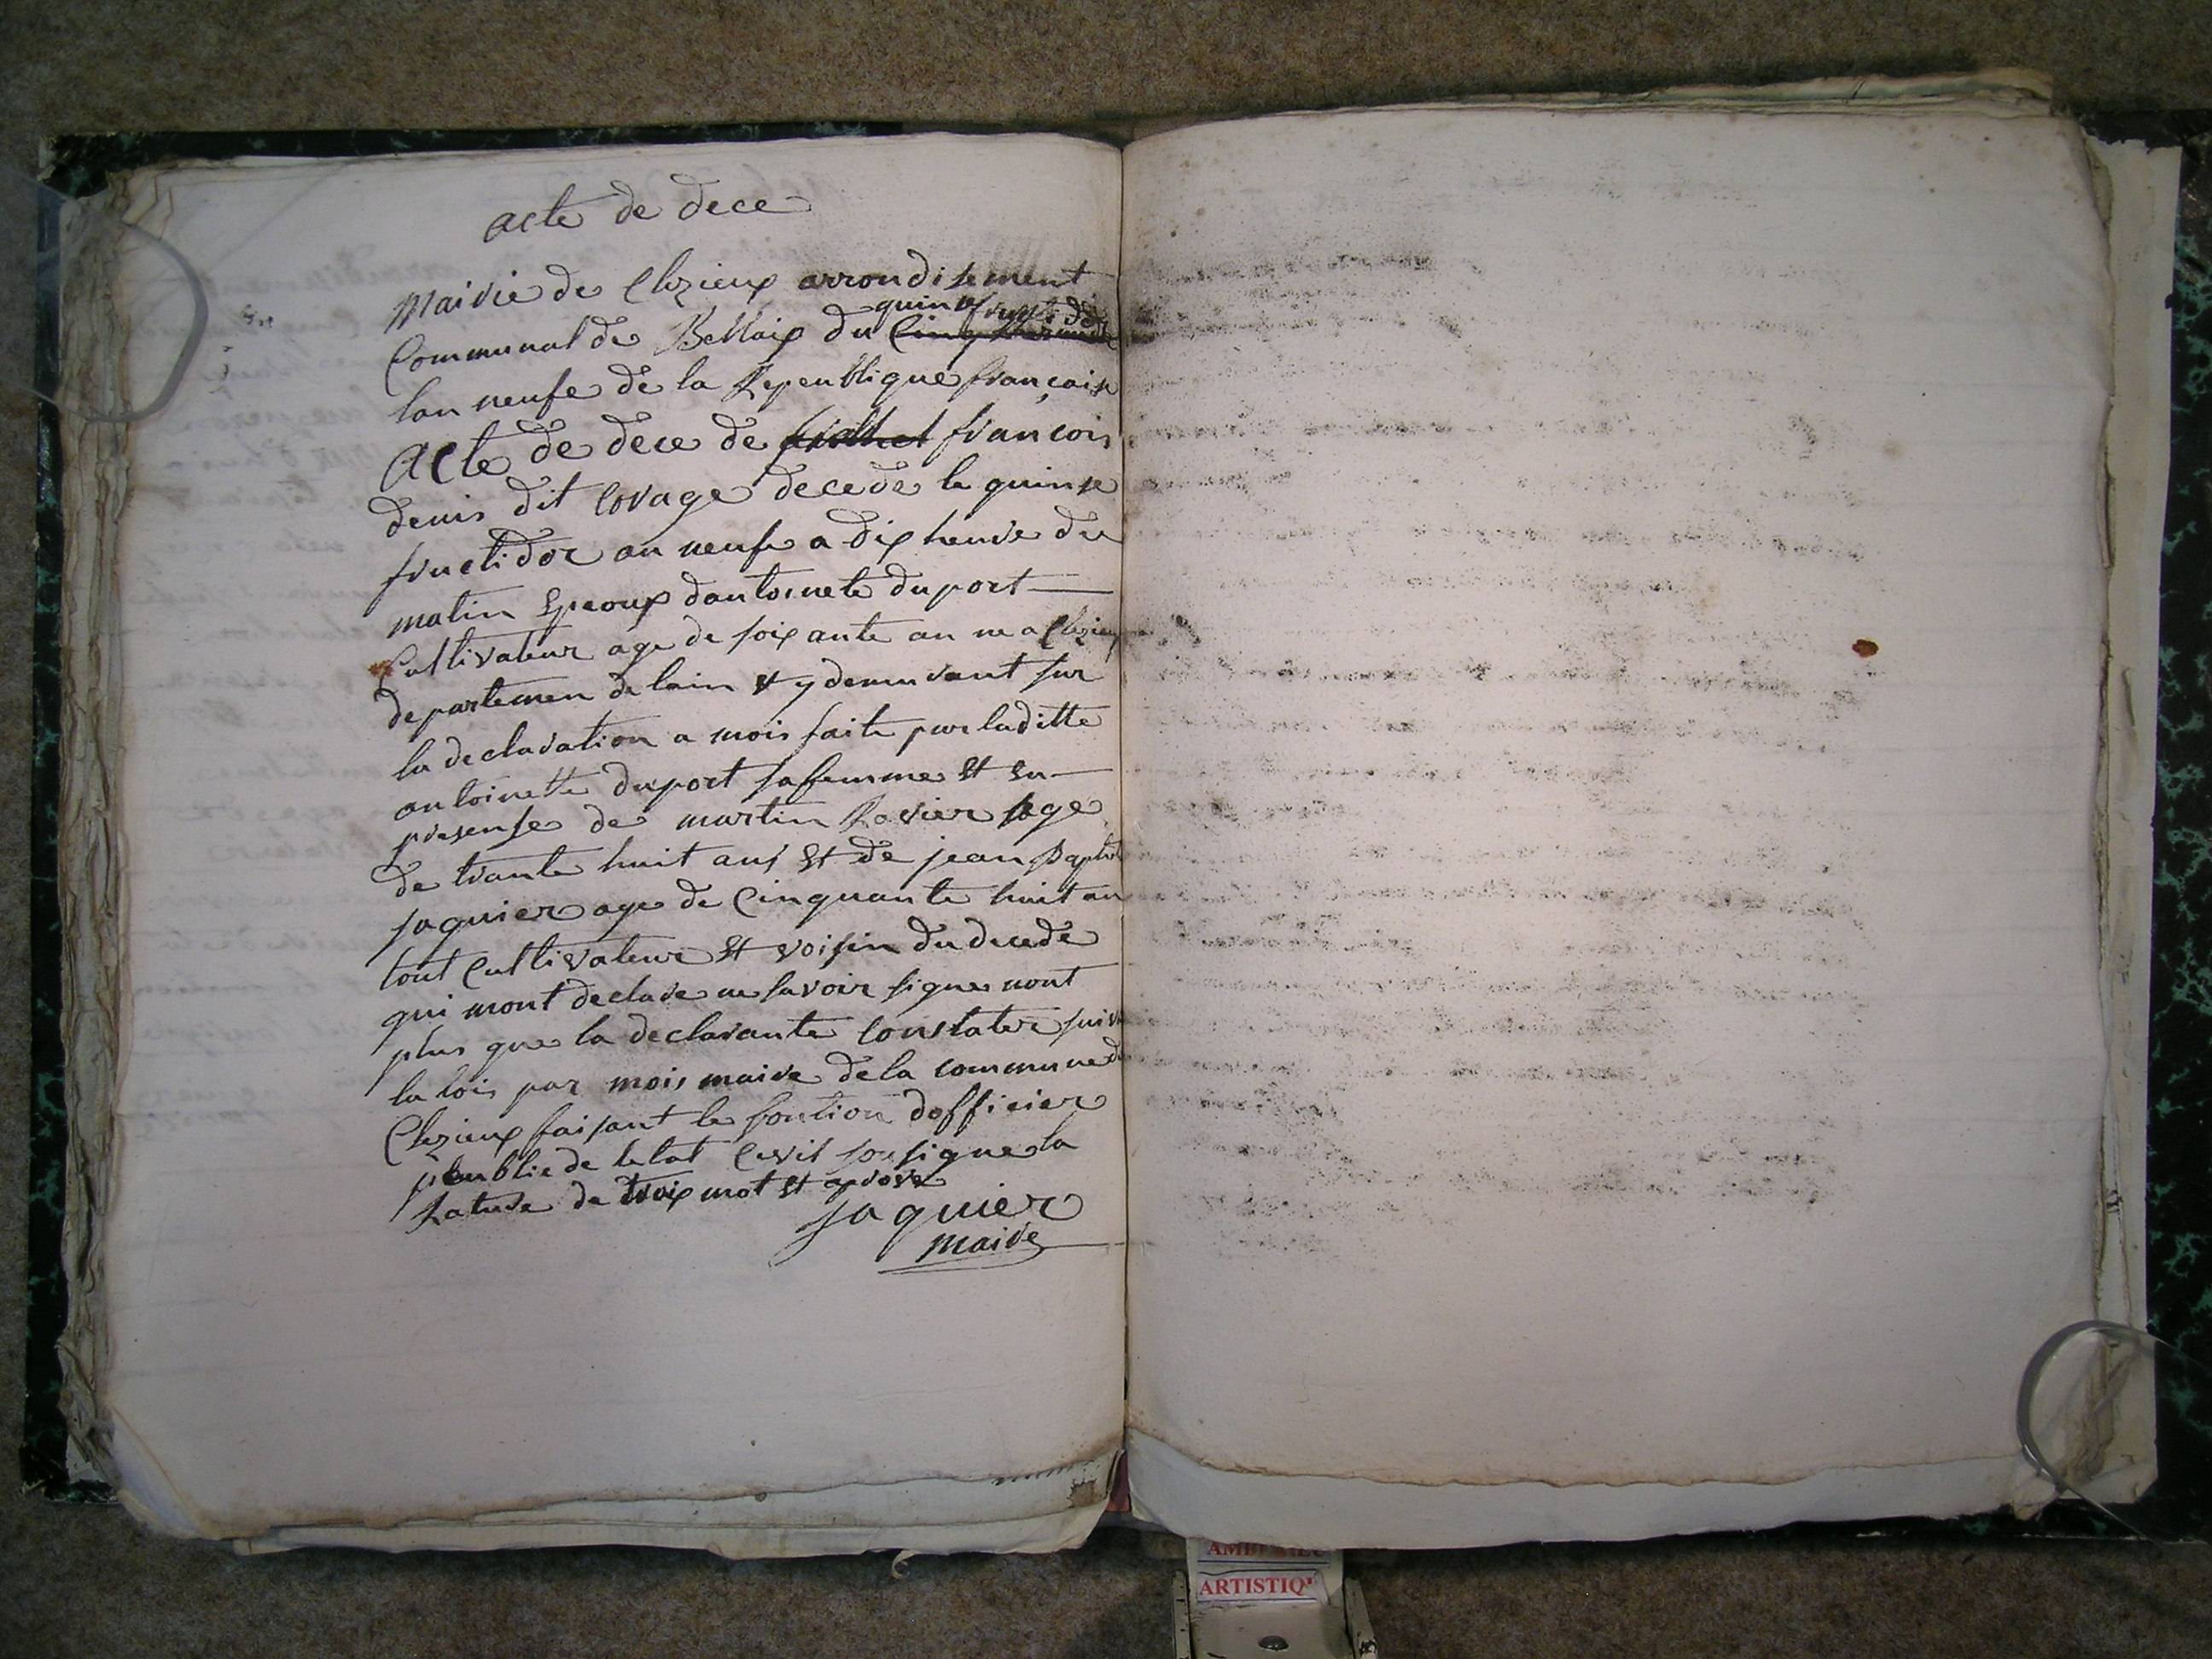 acte de dece
Mairie de Chezieux arrondisement
quinse fruct. dor
Communal de Bellaix du Cinq
lan neufe de la Repeublique française
Acte de dece de françois
denis dit Corage decede le quinse
fructidor an neufe a dix heure du
matin Epeoux dantoinete duport
Cultivateur age de soixante an ne a Chezieux
departemen de lain et y demurant sur
la declaration a mois faite par laditte
antoinette duport sa femme et en
presense de martin Ravier age
de trante huit ans et de jean Baptiste
jaquier age de Cinquante huit an
tout Cultivateur et voisin du decede
qui mont declare ne savoir signe nont
plus que la declarante Constater suivt
la lois par mois maire de la commune de
Chezieux faisant le fontion dofficier
peublic de letat Civil sousigne la
Rature de troix mot et aprove
jaquier
maire
AMBERIEU
ARTISTIQ